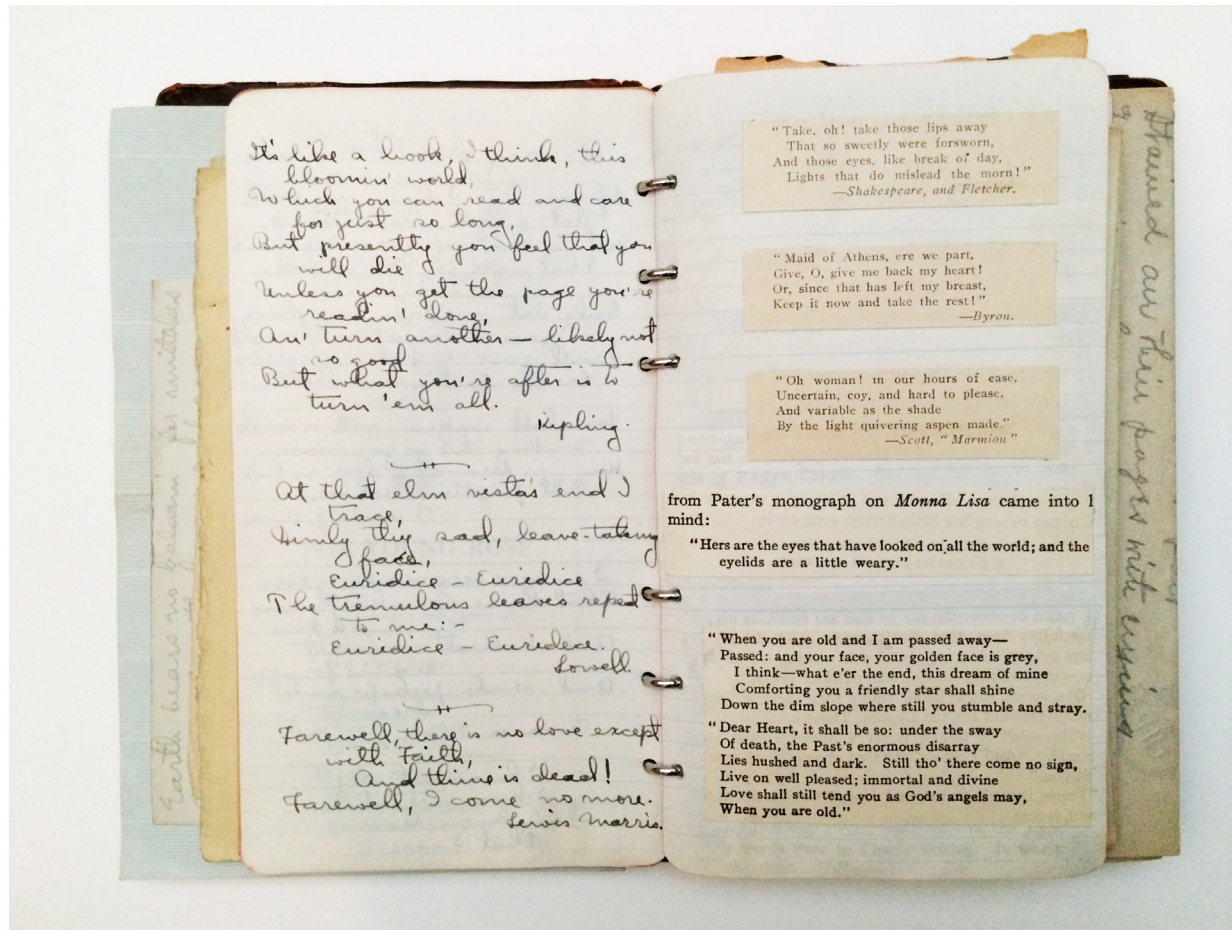 It's like a book, I think, this
bloomin' world,
Which you can read and care
for just so long,
But presently you feel that you
will die
Unless you get the page you're
readin' done,
An' turn another — likely not
so good
But what you're after is to
turn 'em all.
Kipling.
At that elm vista's end I
trace,
Dimly thy sad, leave-taking
face,
Euridice - Euridice
The tremulous leaves repeat
to me:-
Euridice - Euridece.
Lowell.
Farewell, there is no love except
with Faith,
And thine is dead!
Farewell, I come no more.
Lewis Morris.
"Take, oh! take those lips away
That so sweetly were forsworn,
And those eyes, like break of day,
Lights that do mislead the morn!"
—Shakespeare, and Fletcher.
"Maid of Athens, ere we part,
Give, O, give me back my heart!
Or, since that has left my breast,
Keep it now and take the rest!"
—Byron.
"Oh woman! in our hours of ease,
Uncertain, coy, and hard to please,
And variable as the shade
By the light quivering aspen made."
—Scott, "Marmion"
from Pater's monograph on Monna Lisa came into
mind:
"Hers are the eyes that have looked on all the world; and the
eyelids are a little weary."
"When you are old and I am passed away—
Passed: and your face, your golden face is grey,
I think—what e'er the end, this dream of mine
Comforting you a friendly star shall shine
Down the dim slope where still you stumble and stray.
"Dear Heart, it shall be so: under the sway
Of death, the Past's enormous disarray
Lies hushed and dark. Still tho' there come no sign,
Live on well pleased; immortal and divine
Love shall still tend you as God's angels may,
When you are old."
Earth bears no balsam for mistakes
Stained are their pages with